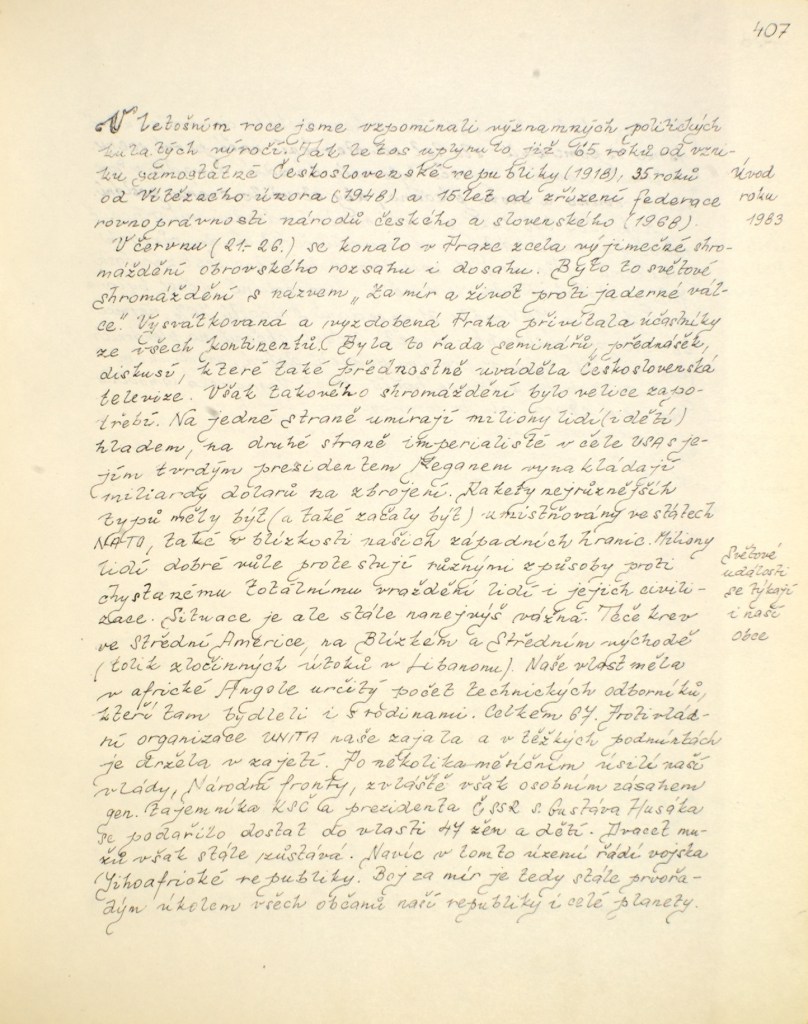 407
V letošním roce jsme vzpomínali významných politických
kulatých výročí. Tak letos uplynulo již 65 roků od vzni-
ku samostatné Československé republiky (1918), 35 roků
od Vítězného února (1948) a 15 let od zřízení federace
rovnoprávnosti národů českého a slovenského (1968).
Úvod
roku
1983
V červnu (21.-26.) se konalo v Praze zcela vyjímečné shro-
máždění obrovského rozsahu i dosahu. Bylo to světové
shromáždění s názvem „Za mír a život proti jaderné vál-
ce". Vysvátkovaná a vyzdobená Praha přivítala účastníky
ze všech kontinentů. Byla to řada seminářů, přednášek,
diskusí, které také přednostně uváděla Československá
televize. Však takového shromáždění bylo velice zapo-
třebí. Na jedné straně umírají miliony lidí (i dětí)
hladem, na druhé straně imperialisté v čele USA s je-
jím tvrdým prezidentem Reganem vynakládají
miliardy dolarů na zbrojení. Rakety nejrůznějších
typů měly být (a také začaly být) umístňovány ve státech
NATO, také v blízkosti našich západních hranic. Miliony
lidí dobré vůle protestují různými způsoby proti
chystanému totálnímu vraždění lidí i jejich civili-
zace. Situace je ale stále nanejvýš vážná. Teče krev
ve Střední Americe, na Blízkém a Středním východě
(tolik zločinných útoků v Libanonu). Naše vlast měla
v africké Angole určitý počet technických odborníků,
kteří tam bydleli i s rodinami. Celkem 67. Protivlád-
ní organizace UNITA naše zajala a v těžkých podmínkách
je držela v zajetí. Po několika měsíčním úsilí naší
vlády, Národní fronty, zvláště však osobním zásahem
gen. tajemníka KSČ a prezidenta ČSSR s. Gustáva Husáka
se podařilo dostat do vlasti 47 žen a dětí. Dvacet mu-
žů však stále zůstává. Navíc v tomto území řádí vojska
Jihoafrické republiky. Boj za mír je tedy stále prvořa-
dým úkolem všech občanů naší republiky i celé planety.
Světové
události
se týkají
i naší
obce